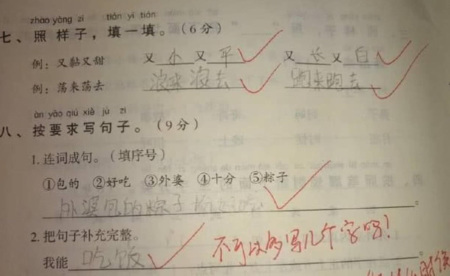 zhào yàng zi tián yì tián
七、照样子，填一填。（6分）
例：又黏又甜 又小又平 又长又白
例：荡来荡去 浪来浪去 跑去
àn yāo qiú xiě jù zi
八、按要求写句子。（9分）
1.连词成句。（填序号）
①包的 ②好吃 ③外婆 ④十分 ⑤粽子
外婆 的粽子 好吃
2.把句子补充完整。
不可以多写几个字吗！
我能吃饭。